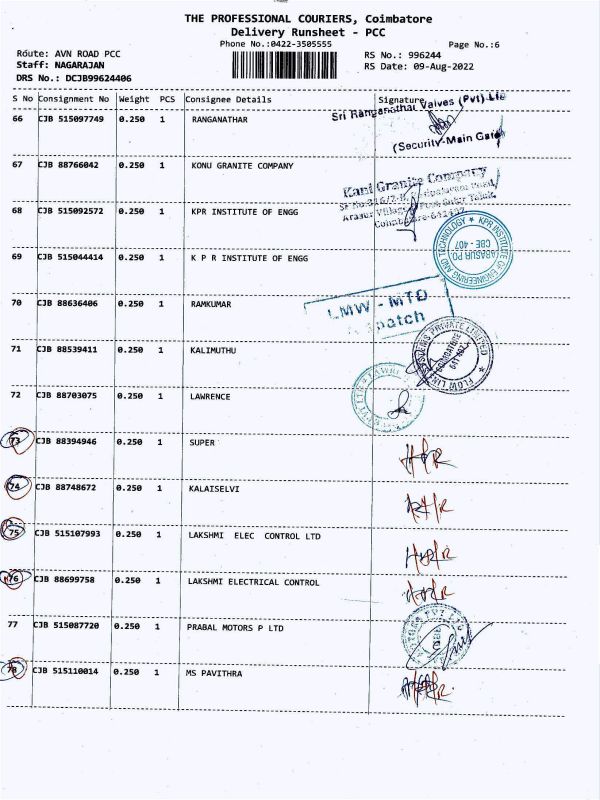 THE PROFESSIONAL COURIERS, Coimbatore
Delivery Runsheet - PCC
Phone No.:0422-3505555
Page No.:6
Route: AVN ROAD PCC
RS No.: 996244
Staff: NAGARAJAN
RS Date: 09-Aug-2022
DRS No.: DCJB99624406
S No Consignment No Weight PCS Consignee Details Signature
Sri Ranganathar Valves (Pvt) Ltd
66 CJB 515097749 0.250 1 RANGANATHAR
(Security-Main Gate)
67 CJB 88766042 0.250 1 KONU GRANITE COMPANY
Kani Granite Company
Coimbatore-641407
68 CJB 515092572 0.250 1 KPR INSTITUTE OF ENGG
KPR INSTITUTE OF ENGINEERING AND TECHNOLOGY
ARASUR PO
CBE - 407
69 CJB 515044414 0.250 1 K P R INSTITUTE OF ENGG
70 CJB 88636406 0.250 1 RAMKUMAR
LMW - MTD
71 CJB 88539411 0.250 1 KALIMUTHU
FLOW LINK SYSTEMS PRIVATE LIMITED
COIMBATORE
72 CJB 88703075 0.250 1 LAWRENCE
73 CJB 88394946 0.250 1 SUPER
74 CJB 88748672 0.250 1 KALAISELVI
75 CJB 515107993 0.250 1 LAKSHMI ELEC CONTROL LTD
76 CJB 88699758 0.250 1 LAKSHMI ELECTRICAL CONTROL
77 CJB 515087720 0.250 1 PRABAL MOTORS P LTD
78 CJB 515110014 0.250 1 MS PAVITHRA